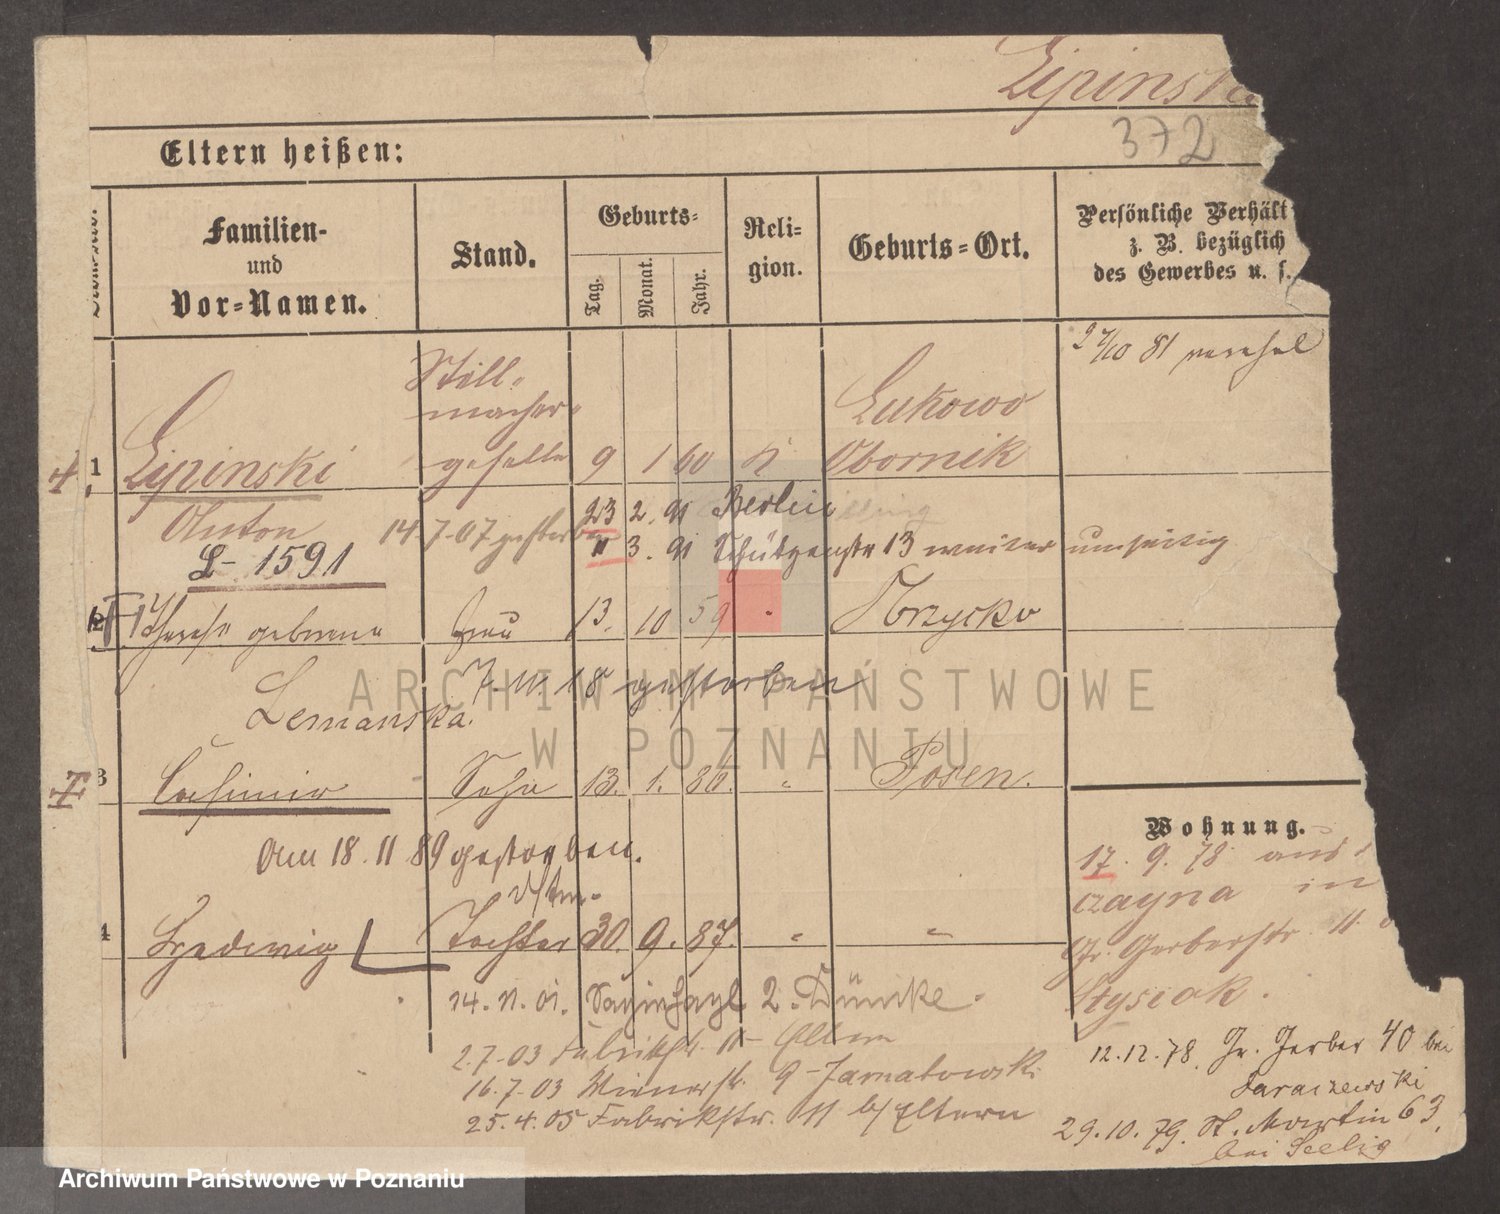 Lipinski
372
Eltern heißen:
Familien-
und
Vor-Namen.
Stand.
Geburts-
Tag.
Monat.
Jahr.
Reli-
gion.
Geburts-Ort.
Persönliche Verhält
z. B. bezüglich
des Gewerbes u. s.
27/10 81
Stell-
macher-
geselle
Lukowo
1 Lipinski 9 1 60 K Obornik
Anton 14.7.07 gestorben 23 2. 91 Berlin
3. 91 Schützenstr 13 weiter umseitig
L-1591
2 Therese geborene Frau 13. 10 59 " Obrzycko
7. 18 gestorben
Lemanska.
3 Casimir Sohn 13. 1. 86. " Posen.
Am 18. 11 89 gestorben.
4 Hedwig Tochter 30. 9. 87. " "
14. 11. 01. 2. Dümke.
2.7-03 Fabrikstr. 11 - Eltern
16.7-03 Wienerstr. 9 -
25.4.05 Fabrikstr. 11 b/ Eltern
Wohnung.
17. 9. 78 aus
czayna in
Gr. Gerberstr. 11
Stysiak.
12.12.78. Gr. Gerber 40 bei
Daraszewski
29.10.79. St. Martin 63.
bei Seelig
ARCHIWUM PAŃSTWOWE
W POZNANIU
Archiwum Państwowe w Poznaniu